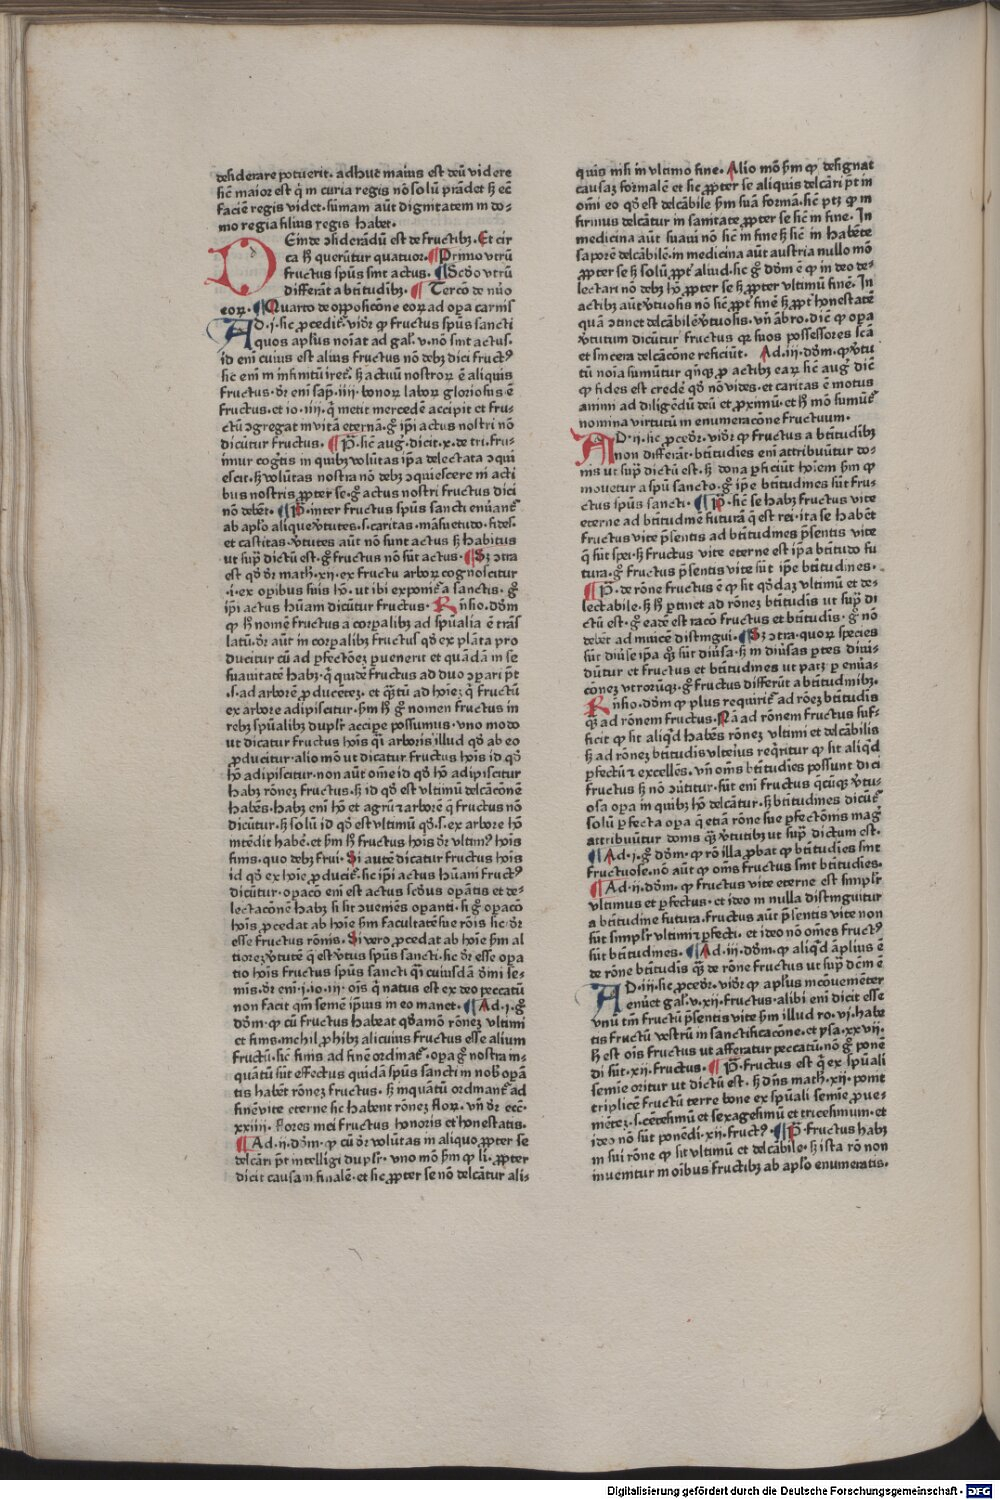 desiderare potuerit. adhuc maius est deū videre
sic̄ maior est q̄ in curia regis nō solū p̄ādet sꝫ ec̄
faciē regis videt. sūmam aūt dignitatem in do-
mo regia filius regis habet.
DEinde ↄsiderādū est de fructibꝫ. Et cir
ca h̄ querūtur quatuor. ¶ Primo vtrū
fructus spūs sint actus. ¶ Scd̄o vtrū
differāt a btītudībꝫ. ¶ Tercō de nūo
eoꝝ. ¶ Quarto de oppositōne eoꝝ ad opa carnis
AD .j. sic ꝓcedit̄. vidr̄ ꝙ fructus spūs sancti
quos apl̄us noīat ad gal̓. v. nō sint actus.
id enī cuius est alius fructus nō debꝫ dici fruct⁹
sic enī in infinitū iret̄. sꝫ actuū nostroꝝ ē aliquis
fructus. dr̄ enī sap̄. iij. bonoꝝ laboꝝ gloriosus ē
fructus. et io. iiij. q̄ metit mercedē accipit et fru-
ctū ↄgregat in vitā eternā. g̊ ip̄i actus nostri nō
dicūtur fructus. ¶ P̄. sic̄ aug̓. dicit. x. de tri. frui-
imur cog̓tis in quibꝫ volūtas ip̄a delectata ↄqui
escit. sꝫ volūtas nostra nō debꝫ ↄquiescere in acti
bus nostris ꝓpter se. g̊ actus nostri fructus dici
nō debēt. ¶ P̄. inter fructus spūs sancti enūant̄
ab apl̓o alique v̓tutes. s. caritas. māsuetudo. fides.
et castitas. v̓tutes aūt nō sunt actus sꝫ habitus
ut sup̄ dictū est. g̊ fructus nō sūt actus. ¶ Sꝫ ↄtra
est qd̓ dr̄ math̓. xij. ex fructu arboꝝ cognoscitur
.i. ex opibus suis hō. ut ibi exponit̄ a sanctis. g̊
ip̄i actus hūam dicūtur fructus. Rn̄sio. dōm
ꝙ h̓ nomē fructus a corꝑalibꝫ ad spūalia ē trās
latū. dr̄ aūt in corꝑalibꝫ fruct⁹ qd̓ ex plāta pro
ducitur cū ad ꝑfectōeꝫ ꝑuenerit et quādā in se
suauitatē habꝫ. q̄ quidē fructus ad duo ↄꝑari p̄t
.s. ad arborē ꝓducētēꝫ. et q̄ztū ad hoīeꝫ q̄ fructū
ex arbore adipiscitur. ẜm h̓ g̊ nomen fructus in
rebꝫ spūalibꝫ duplr̄ accipe possumus. vno modo
ut dicatur fructus hoīs q̄i arboris illud qd̓ ab eo
ꝓducitur. alio mō ut dicatur fructus hoīs id qd̓
hō adipiscitur. non aūt om̄e id qd̓ hō adipiscitur
habꝫ rōneꝫ fructus. sꝫ id qd̓ est vltimū delcācōnē
habēs. habꝫ enī hō et agrū ꝛ arborē q̄ fructus nō
dicūtur. sꝫ solū id qd̓ est vltimū qd̓. s. ex arbore hō
intēdit habē. et ẜm h̓ fructus hoīs dr̄ vltim⁹ hoīs
finis. quo debꝫ frui. Si autē dicatur fructus hoīs
id qd̓ ex hoīe ꝓducit̄. sic ip̄i actus hūani fruct⁹
dicūtur. opacō enī est actus scd̓us opātis et de-
lectacōnē habꝫ si sit ↄueniēs opanti. si g̊ opacō
hoīs ꝓcedat ab hoīe ẜm facultatē sue rōis sic dr̄
esse fructus rōnis. Si vero ꝓcedat ab hoīe ẜm al
tiorē v̓tutē q̄ est v̓tus spūs sancti. sic dr̄ esse opa
tio hoīs fructus spūs sancti q̄i cuiusdā diuini se-
mīs. dr̄ enī .i. io. iij. oīs q̄ natus est ex deo peccatū
non facit qm̄ semē ip̄ius in eo manet. ¶ Ad .j. g̊
dōm. ꝙ cū fructus habeat qd̓āmō rōneꝫ vltimi
et finis. nichil ꝓhibꝫ alicuius fructus esse alium
fructū. sic̄ finis ad finē ordinat̄. opa g̊ nostra in-
quātū sūt effectus quidā spūs sancti in nob̓ opā
tis habēt rōneꝫ fructus. sꝫ inquātū ordinant̄ ad
finē vite eterne sic habent rōneꝫ floꝝ. vn̄ dr̄ ecc̄.
xxiiij. flores mei fructus honoris et honestatis.
¶ Ad .ij. dōm. ꝙ cū dr̄ volūtas in aliquo ꝓpter se
delcāri p̄t intelligi duplr̄. vno mō ẜm ꝙ li. ꝓpter
dicit causam finalē. et sic ꝓpter se nō delcātur ali-
quis nisi in vltimo fine. Alio mō ẜm ꝙ designat
causaꝫ formalē et sic ꝓpter se aliquis delcāri p̄t in
om̄i eo qd̓ est delcābile ẜm suā formā. sic̄ ptꝫ ꝙ in
firmus delcātur in sanitate ꝓpter se sic̄ in fine. In
medicina aūt suaui nō sic̄ in fine sꝫ sic̄ in habēte
saporē delcābilē. in medicina aūt austria nullo mō
ꝓpter se sꝫ solū ꝓpt̄ aliud. sic g̊ dōm ē ꝙ in deo de-
lectari nō debꝫ hō ꝓpter se sꝫ ꝓpter vltimū finē. In
actibꝫ aūt v̓tuosis nō sic̄ ꝓpt̄ finē sꝫ ꝓpt̄ honestatē
quā ↄtinet delcābilē v̓tuosis. vn̄ ābro. dic̄ ꝙ opa
v̓tutum dicūtur fructus qꝛ suos possessores scā
et sincera delcācōne reficiūt. Ad .iij. dōm. ꝙ v̓tu
tū noīa sumūtur qn̄qꝫ ꝓ actibꝫ eaꝝ sic̄ aug̓ dic̄
ꝙ fides est credē qd̓ nō vides. et caritas ē motus
animi ad diligēdū deū et ꝓximū. et h̓ mō sumūt̄
nomina virtutū in enumeracōne fructuum.
AD .ij. sic ꝓcedr̄. vidr̄ ꝙ fructus a btītudībꝫ
non differāt. btītudies enī attribuūtur do-
nis ut sup̄ dictū est. sꝫ dona ꝑficiūt hoīem ẜm ꝙ
mouetur a spū sancto. g̊ ip̄e btītudines sūt fru-
ctus spūs sancti. ¶ P̄. sic̄ se habꝫ fructus vite
eterne ad btītudinē futurā q̄ est rei. ita se habēt
fructus vite p̄sentis ad btītudines p̄sentis vite
q̄ sūt spei. sꝫ fructus vite eterne est ip̄a btītudo fu
tura. g̊ fructus p̄sentis vite sūt ip̄e btītudines.
¶ P̄. de rōne fructus ē ꝙ sit qd̓daꝫ vltimū et de-
lectabile. sꝫ h̓ ꝑtinet ad rōneꝫ btītudis ut sup̄ di
ctū est. g̊ eadē est racō fructus et btītudis. g̊ nō
debēt ad inuicē distingui. ¶ Sꝫ ↄtra. quoꝝ species
sūt diuīse ip̄a qꝫ sūt diūsa. sꝫ in diūsas ꝑtes diui-
dūtur et fructus et btītudines ut patꝫ ꝑ enūa-
cōneꝫ vtroꝝqꝫ. g̊ fructus differūt a btītudinibꝫ.
Rn̄sio. dōm ꝙ plus requirit̄ ad rōeꝫ btītudis
qꝫ ad rōnem fructus. Nā ad rōnem fructus suf-
ficit ꝙ sit aliq̄d habēs rōneꝫ vltimi et delcābilis
sꝫ ad rōneꝫ btītudis vlteīus req̄ritur ꝙ sit aliq̄d
ꝑfectū ꝛ excellēs. vn̄ om̄s btītudies possunt dici
fructus sꝫ nō ↄūtitur. sūt enī fructus q̄cūqꝫ v̓tu-
osa opa in quibꝫ hō delcātur. sꝫ btītudines dicūt̄
solū ꝑfecta opa q̄ etiā rōne sue ꝑfectōnis mag̓
attribuūtur donis qꝫ v̓tutibꝫ ut sup̄ dictum est.
¶ Ad .j. g̊ dōm. ꝙ rō illa ꝓbat ꝙ btītudies sint
fructuose. nō aūt ꝙ om̄s fructus sint btītudies.
¶ Ad .ij. dōm. ꝙ fructus vite eterne est simplr̄
vltimus et ꝑfectus. et ideo in nulla distinguitur
a btītudine futura. fructus aūt p̄sentis vite non
sūt simplr̄ vltimi ꝛ ꝑfecti. et ideo nō om̄es fruct⁹
sūt btītudines. ¶ Ad .iij. dōm. ꝙ aliq̄d āplius ē
de rōne btītudis qꝫ de rōne fructus ut sup̄ dcm̄ ē
AD .iij. sic ꝓcedr̄. vidr̄ ꝙ apl̓us incōueniēter
enūet gal̓. v. xij. fructus. alibi enī dicit esse
vnū tm̄ fructū p̄sentis vite ẜm illud ro. vj. habe
tis fructū vestrū in sanctificacōne. et ysa. xxvij.
h̓ est oīs fructus ut afferatur peccatū. nō g̊ ponē
di sūt. xij. fructus. ¶ P̄. fructus est q̄ ex spūali
semīe oritur ut dictū est. sꝫ dn̄s math̓. xij. ponit
triplicē fructū terre bone ex spūali semīe ꝓue-
niētēꝫ. s. cētesimū et sexagesimū et tricesimum. et
ideo nō sūt ponēdi. xij. fruct⁹. ¶ P̄. fructus habꝫ
in sui rōne ꝙ sit vltimū et delcābile. sꝫ ista rō non
inuenitur in oībus fructibꝫ ab apl̓o enumeratis.
Digitalisierung gefördert durch die Deutsche Forschungsgemeinschaft - DFG